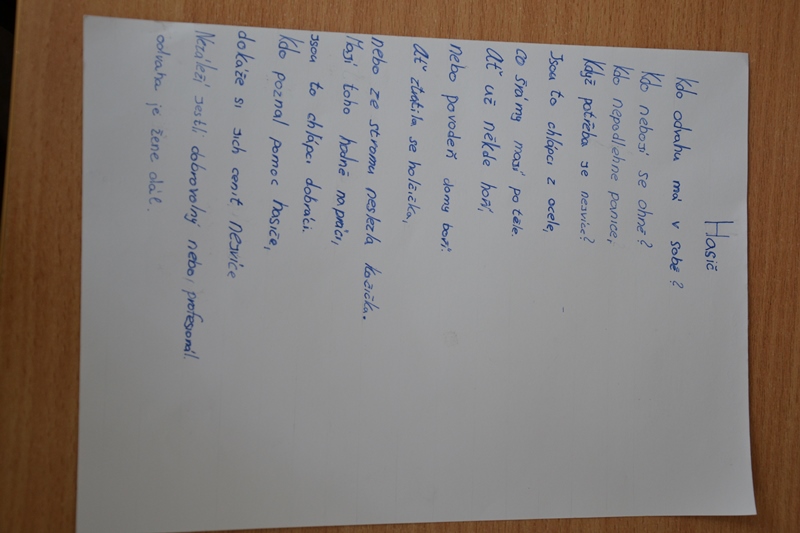 Hasič
Kdo odvahu má v sobě?
Kdo nebojí se ohně?
Kdo nepodlehne panice,
Když potřeba je nejvíce?
Jsou to chlápci z ocele,
co šrámy mají po těle.
Ať už někde hoří,
nebo povodeň domy boří.
Ať ztratila se holčička,
nebo ze stromu neslezla kočička.
Mají toho hodně na práci,
jsou to chlápci dobráci.
Kdo poznal pomoc hasiče,
dokáže si jich cenit nejvíce
Nezáleží jestli dobrovolný nebo profesionál.
odvaha je žene dál.